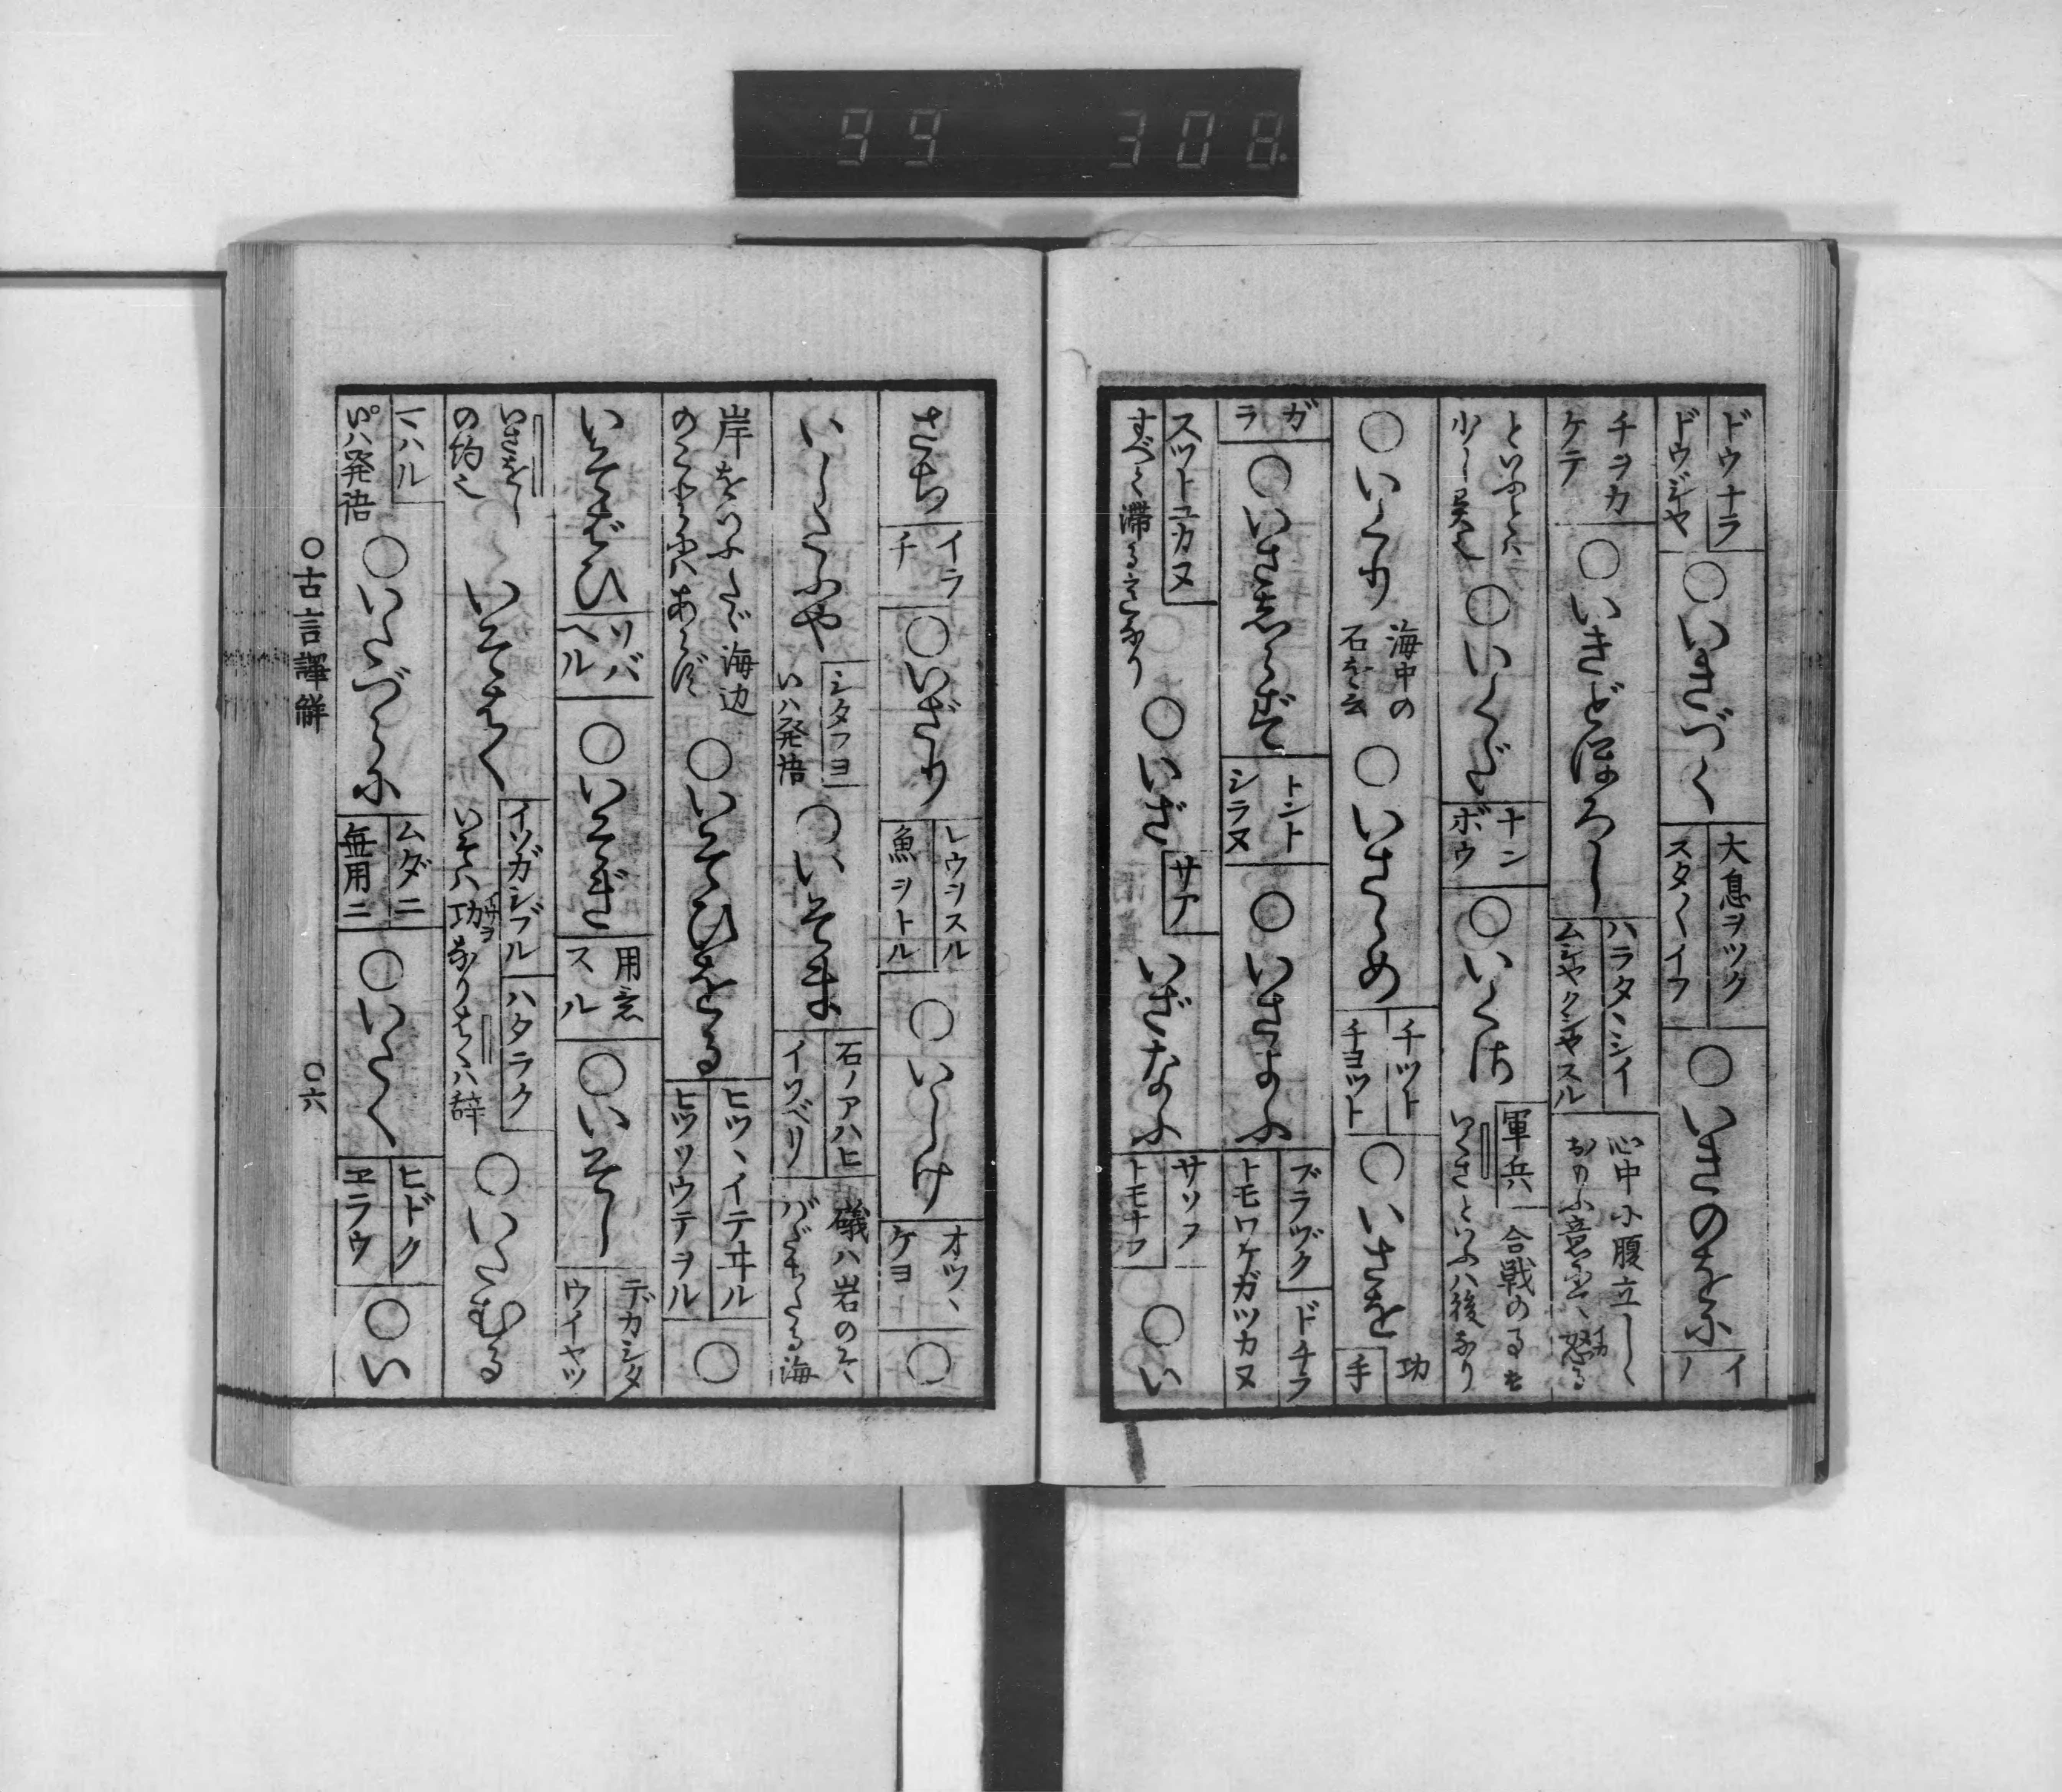 99 308.
ドウナラ
ドウジヤ
○いきづく
大息ヲツク
スタ〳〵イフ
○いきのをに
イノ
チヲカ
ケテ
○いきどほろし
ハラタヽシイ
ムシヤクシヤスル
心中に腹立し
怒る
といふとハ
少し異也
○いくだ
ナン
ボウ
○いくさ
軍兵
合戦の事を
いくさといふハ後なり
○いくり
海中の
石を云
○いさゝめ
チツト
チヨツト
○いさを
功
手
ガ
ラ
○いさしらず
トント
シラヌ
○いさよふ
ブラヅク
ドチラ
トモワケガツカヌ
スツトユカヌ
すべて滞る意なり
○いざ
サア
いざなふ
サソフ
トモナフ
○い
さち
イラ
チ
○いざり
レウヲスル
魚ヲトル
○いしけ
オツヽ
ケヨ
○
いしたふや
シタフヨ
いハ発語
○いそま
石ノアハヒ
イソベリ
磯ハ岩のそ
ばだちたる海
岸をいふたゞ海辺
のことにハあらず
○いそひをる
ヒツヽイテヰル
ヒツソウテヲル
○
いそばひ
ソバ
ヘル
○いそぎ
用意
スル
○いそし
デカシタ
ウイヤツ
いさをし
の約也
いそはく
イソガシブル
ハタラク
いそハ功なりはくハ辞
○いたむる
マハル
いハ発語
○いたづらに
ムダニ
無用ニ
○いたく
ヒドク
ヱラウ
○い
○古言譯解
○六